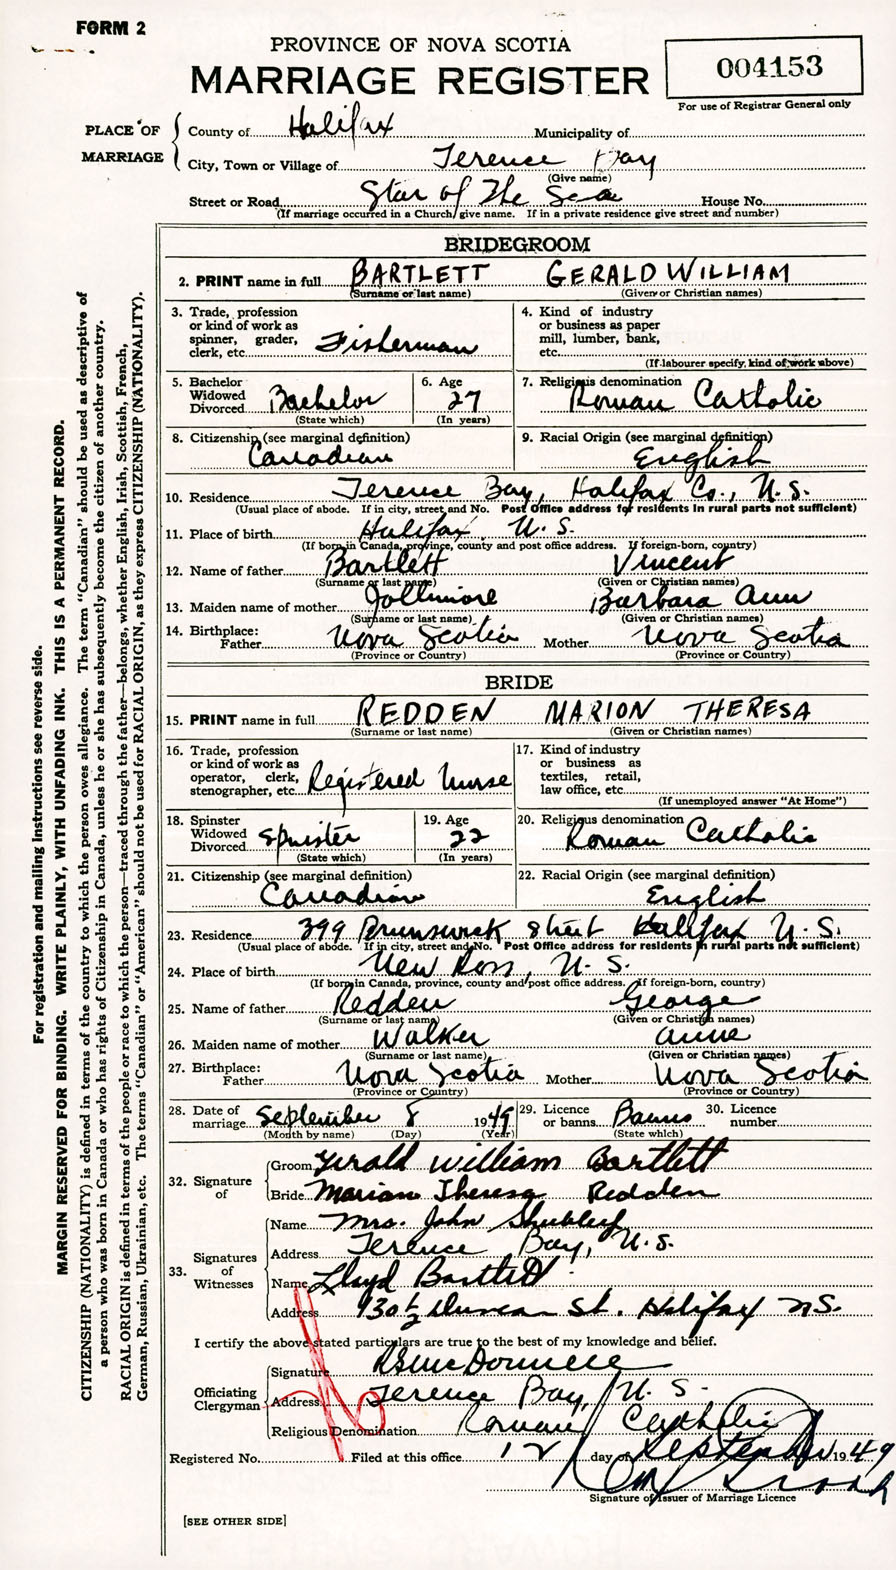 FORM 2
PROVINCE OF NOVA SCOTIA
MARRIAGE REGISTER
004153
For use of Registrar General only
PLACE OF MARRIAGE
County of Halifax Municipality of
City, Town or Village of Terence Bay
(Give name)
Street or Road Star of The Sea House No.
(If marriage occurred in a Church give name. If in a private residence give street and number)
BRIDEGROOM
2. PRINT name in full BARTLETT GERALD WILLIAM
(Surname or last name) (Given or Christian names)
3. Trade, profession or kind of work as spinner, grader, clerk, etc. Fisherman
4. Kind of industry or business as paper mill, lumber, bank, etc.
(If labourer specify, kind of work above)
5. Bachelor Widowed Divorced Bachelor
(State which)
6. Age 27
(In years)
7. Religious denomination Roman Catholic
8. Citizenship (see marginal definition) Canadian
9. Racial Origin (see marginal definition) English
10. Residence Terence Bay, Halifax Co., N.S.
(Usual place of abode. If in city, street and No. Post Office address for residents in rural parts not sufficient)
11. Place of birth Halifax, N.S.
(If born in Canada, province, county and post office address. If foreign-born, country)
12. Name of father Bartlett Vincent
(Surname or last name) (Given or Christian names)
13. Maiden name of mother Jollimore Barbara Ann
(Surname or last name) (Given or Christian names)
14. Birthplace: Father Nova Scotia Mother Nova Scotia
(Province or Country) (Province or Country)
BRIDE
15. PRINT name in full REDDEN MARION THERESA
(Surname or last name) (Given or Christian names)
16. Trade, profession or kind of work as operator, clerk, stenographer, etc. Registered Nurse
17. Kind of industry or business as textiles, retail, law office, etc.
(If unemployed answer "At Home")
18. Spinster Widowed Divorced Spinster
(State which)
19. Age 22
(In years)
20. Religious denomination Roman Catholic
21. Citizenship (see marginal definition) Canadian
22. Racial Origin (see marginal definition) English
23. Residence 399 Brunswick Street Halifax N.S.
(Usual place of abode. If in city, street and No. Post Office address for residents in rural parts not sufficient)
24. Place of birth New Ross, N.S.
(If born in Canada, province, county and post office address. If foreign-born, country)
25. Name of father Redden George
(Surname or last name) (Given or Christian names)
26. Maiden name of mother Walker Anne
(Surname or last name) (Given or Christian names)
27. Birthplace: Father Nova Scotia Mother Nova Scotia
(Province or Country) (Province or Country)
28. Date of marriage September 8 1949
(Month by name) (Day) (Year)
29. Licence or banns Banns
(State which)
30. Licence number
32. Signature of
Groom Gerald William Bartlett
Bride Marion Theresa Redden
33. Signatures of Witnesses
Name Mrs. John
Address Terence Bay, N.S.
Name Lloyd Bartlett
Address 930½ Duncan St. Halifax N.S.
I certify the above stated particulars are true to the best of my knowledge and belief.
Officiating Clergyman
Signature
Address Terence Bay, N.S.
Religious Denomination Roman Catholic
Registered No. Filed at this office 12 day of September 1949
Signature of Issuer of Marriage Licence
[SEE OTHER SIDE]
For registration and mailing instructions see reverse side.
MARGIN RESERVED FOR BINDING. WRITE PLAINLY, WITH UNFADING INK. THIS IS A PERMANENT RECORD.
CITIZENSHIP (NATIONALITY) is defined in terms of the country to which the person owes allegiance. The term "Canadian" should be used as descriptive of
a person who was born in Canada or who has rights of Citizenship in Canada, unless he or she has subsequently become the citizen of another country.
RACIAL ORIGIN is defined in terms of the people or race to which the person—traced through the father—belongs, whether English, Irish, Scottish, French,
German, Russian, Ukrainian, etc. The terms "Canadian" or "American" should not be used for RACIAL ORIGIN, as they express CITIZENSHIP (NATIONALITY).